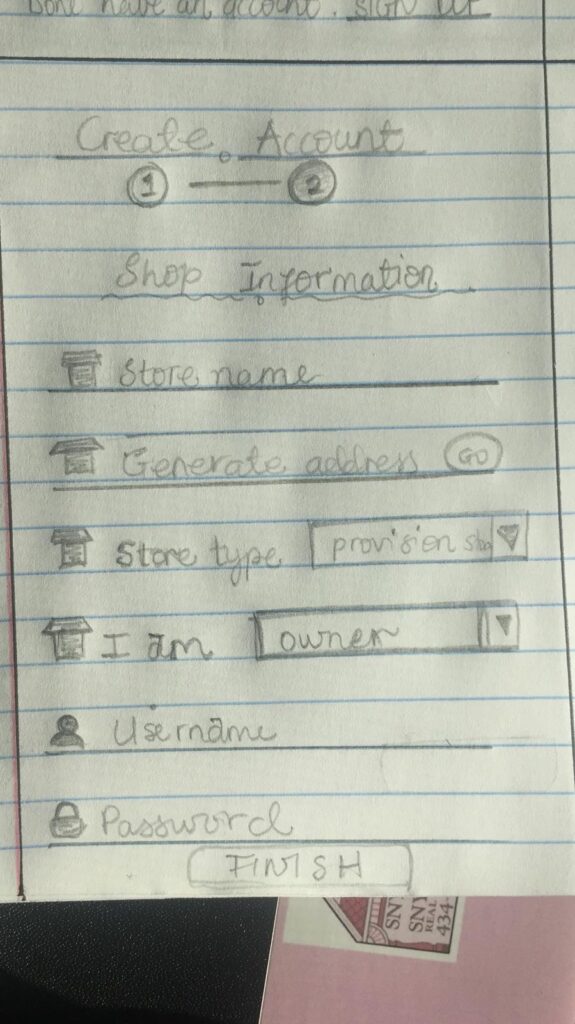 Dont have an account. SIGN UP
Create Account
1 2
Shop Information
Store name
Generate address GO
Store type provision
I am owner
Username
Password
FINISH
SNY
SNY
REAL
434